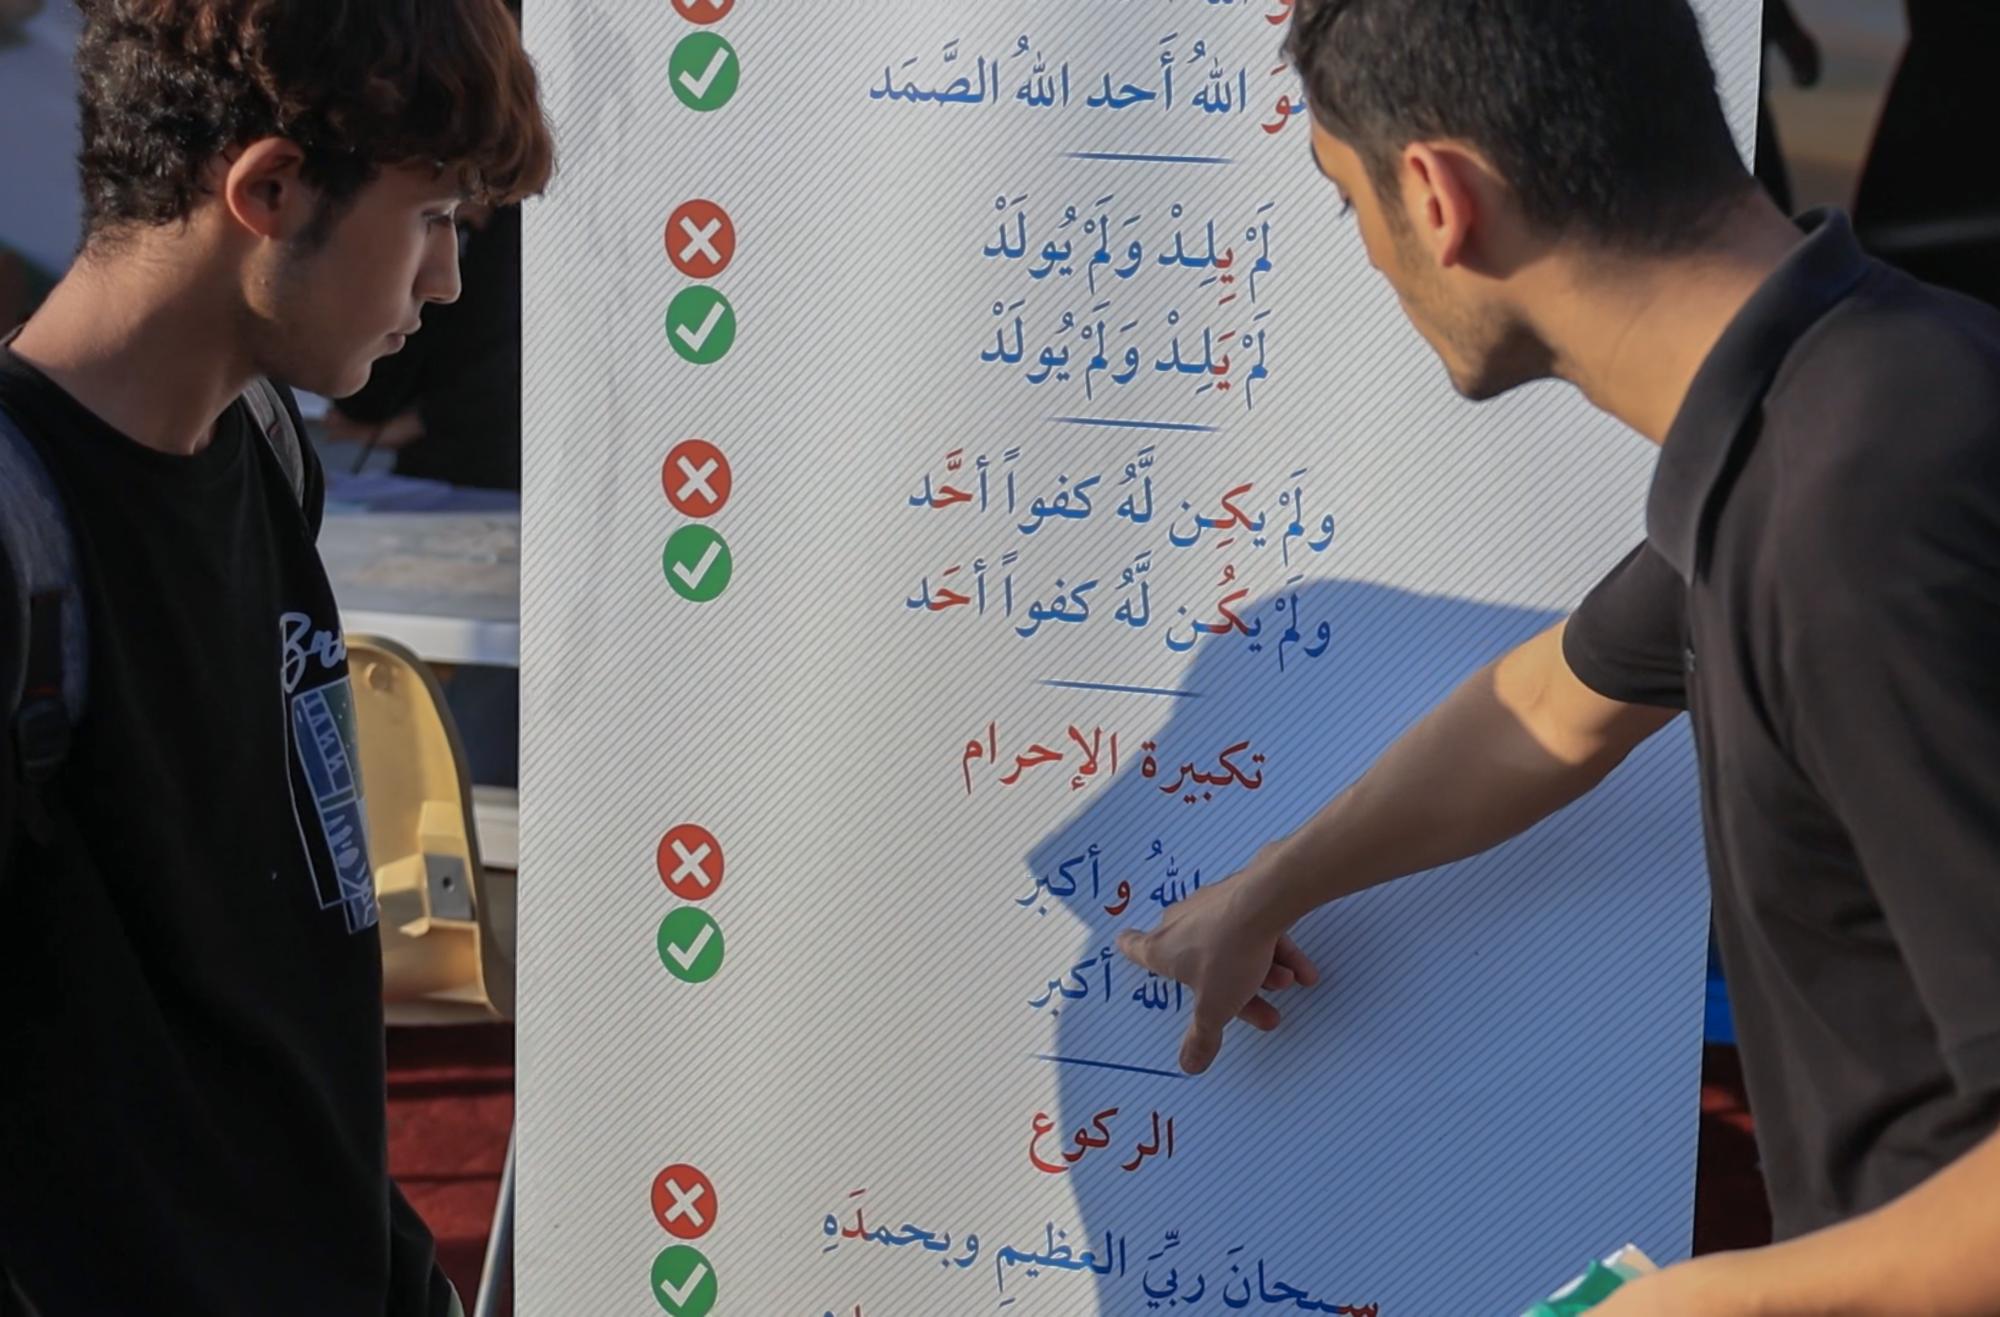 وَ اللهُ أَحد اللهُ الصَّمَد
لَمْ يِلِـدْ وَلَمْ يُولَدْ
لَمْ يَلِـدْ وَلَمْ يُولَدْ
ولَمْ يكِـن لَّهُ كفواً أحَّد
ولَمْ يكُـن لَّهُ كفواً أحَد
تكبيرة الإحرام
اللهُ و أكبر
الله أكبر
الركوع
سبحانَ ربِّيَ العظيمِ وبحمدَهِ